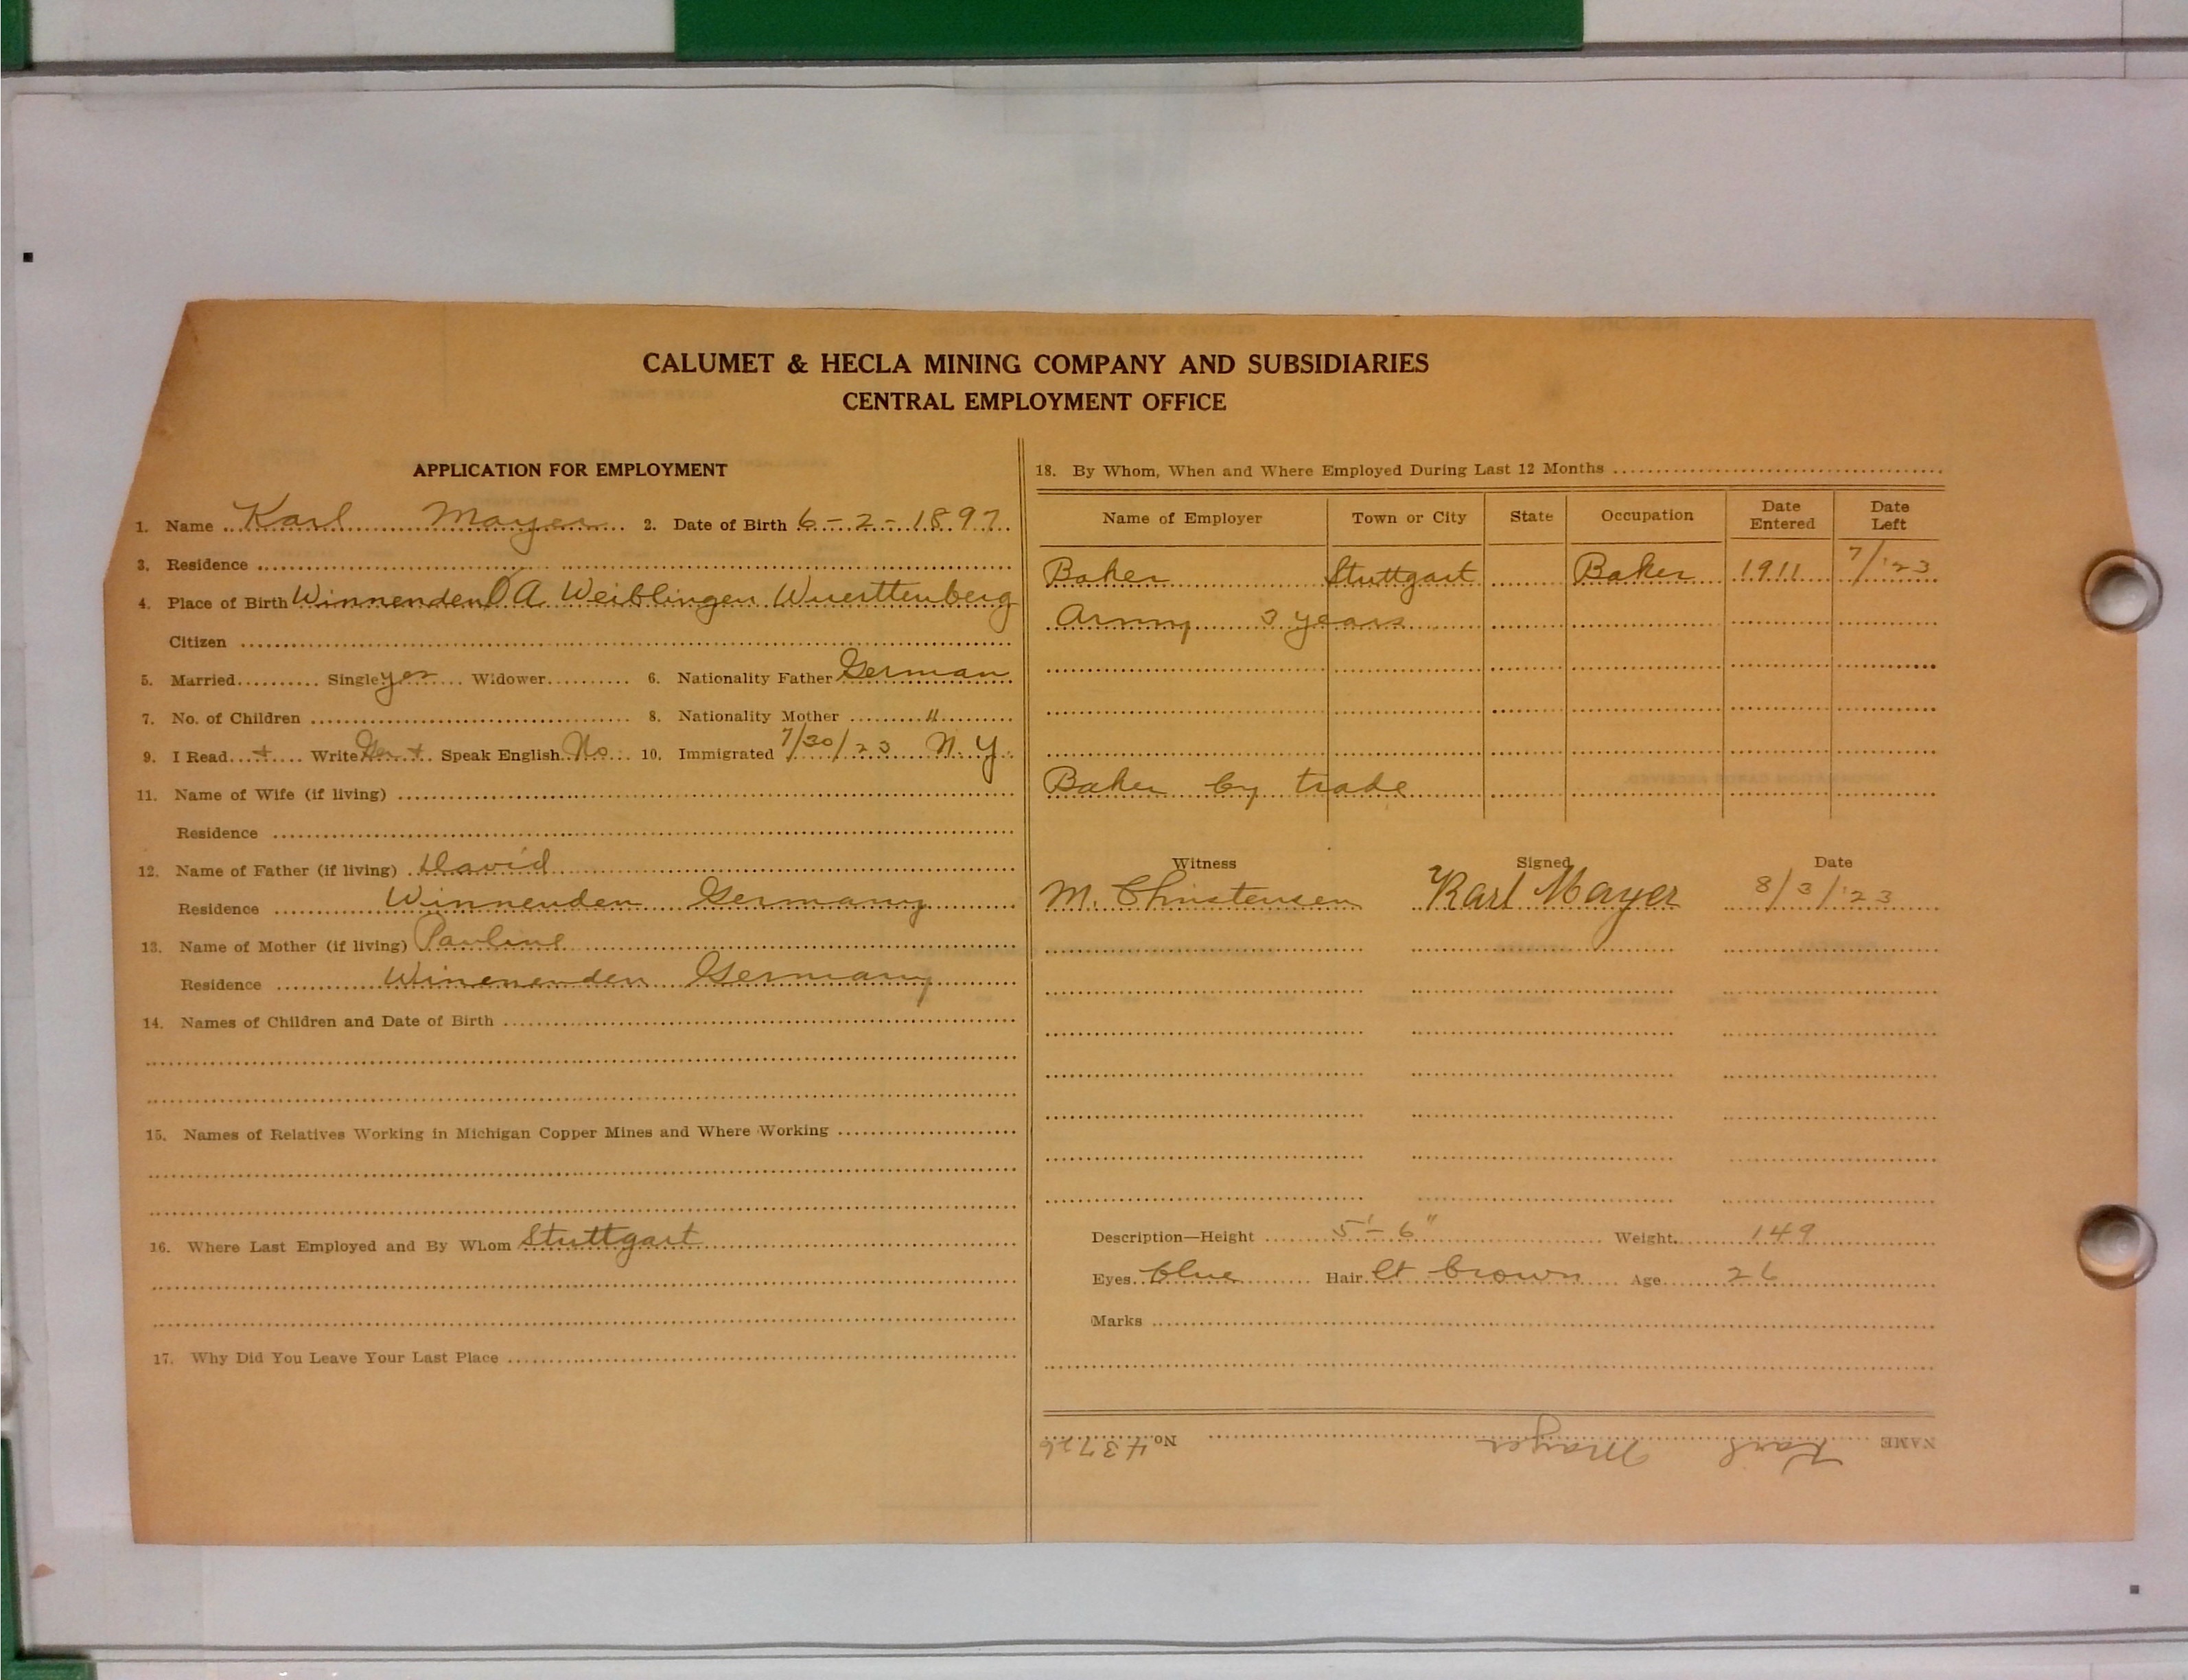 CALUMET & HECLA MINING COMPANY AND SUBSIDIARIES
CENTRAL EMPLOYMENT OFFICE
APPLICATION FOR EMPLOYMENT
1. Name Karl Mayer 2. Date of Birth 6-2-1897
3. Residence
4. Place of Birth Winnenden O A Weiblingen Wuerttenberg
Citizen
5. Married Single yes Widower 6. Nationality Father German
7. No. of Children 8. Nationality Mother "
9. I Read + Write Ger + Speak English No 10. Immigrated 7/30/23 N.Y.
11. Name of Wife (if living)
Residence
12. Name of Father (if living) David
Residence Winnenden Germany
13. Name of Mother (if living) Pauline
Residence Winenenden Germany
14. Names of Children and Date of Birth
15. Names of Relatives Working in Michigan Copper Mines and Where Working
16. Where Last Employed and By Whom Stuttgart
17. Why Did You Leave Your Last Place
18. By Whom, When and Where Employed During Last 12 Months
Name of Employer Town or City State Occupation Date Entered Date Left
Baker Stuttgart Baker 1911 7/'23
Army 3 years
Baker by trade
Witness Signed Date
M. Christensen Karl Mayer 8/3/'23
Description—Height 5'-6" Weight 149
Eyes blue Hair lt brown Age 26
Marks
NAME Karl Mayer No. 43726